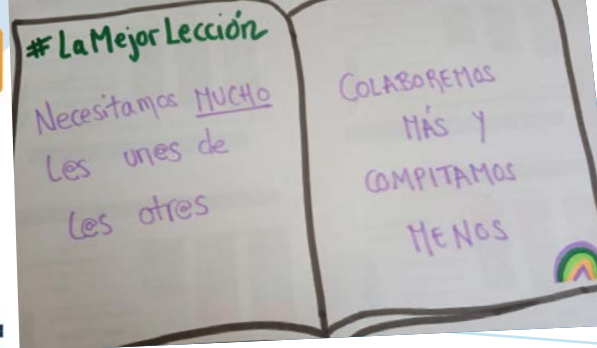 #LaMejorLección
Necesitamos MUCHO
Les unes de
les otres
COLABOREMOS
MÁS Y
COMPITAMOS
MENOS